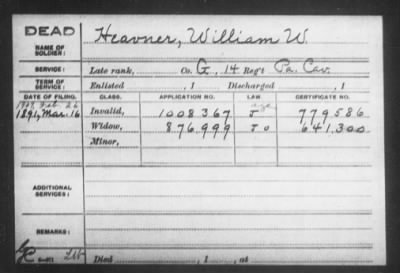 DEAD
NAME OF SOLDIER:
Heavner, William W.
SERVICE: Late rank, Co. G, 14 Reg't Pa. Cav.
TERM OF SERVICE: Enlisted , 1 Discharged , 1
DATE OF FILING. CLASS. APPLICATION NO. LAW. CERTIFICATE NO.
Feb. 26 Invalid, 1008367 J age 779586
1891, Mar. 16 Widow, 876,999 J o 641,300
Minor,
ADDITIONAL SERVICES:
REMARKS:
Died , 1 , at